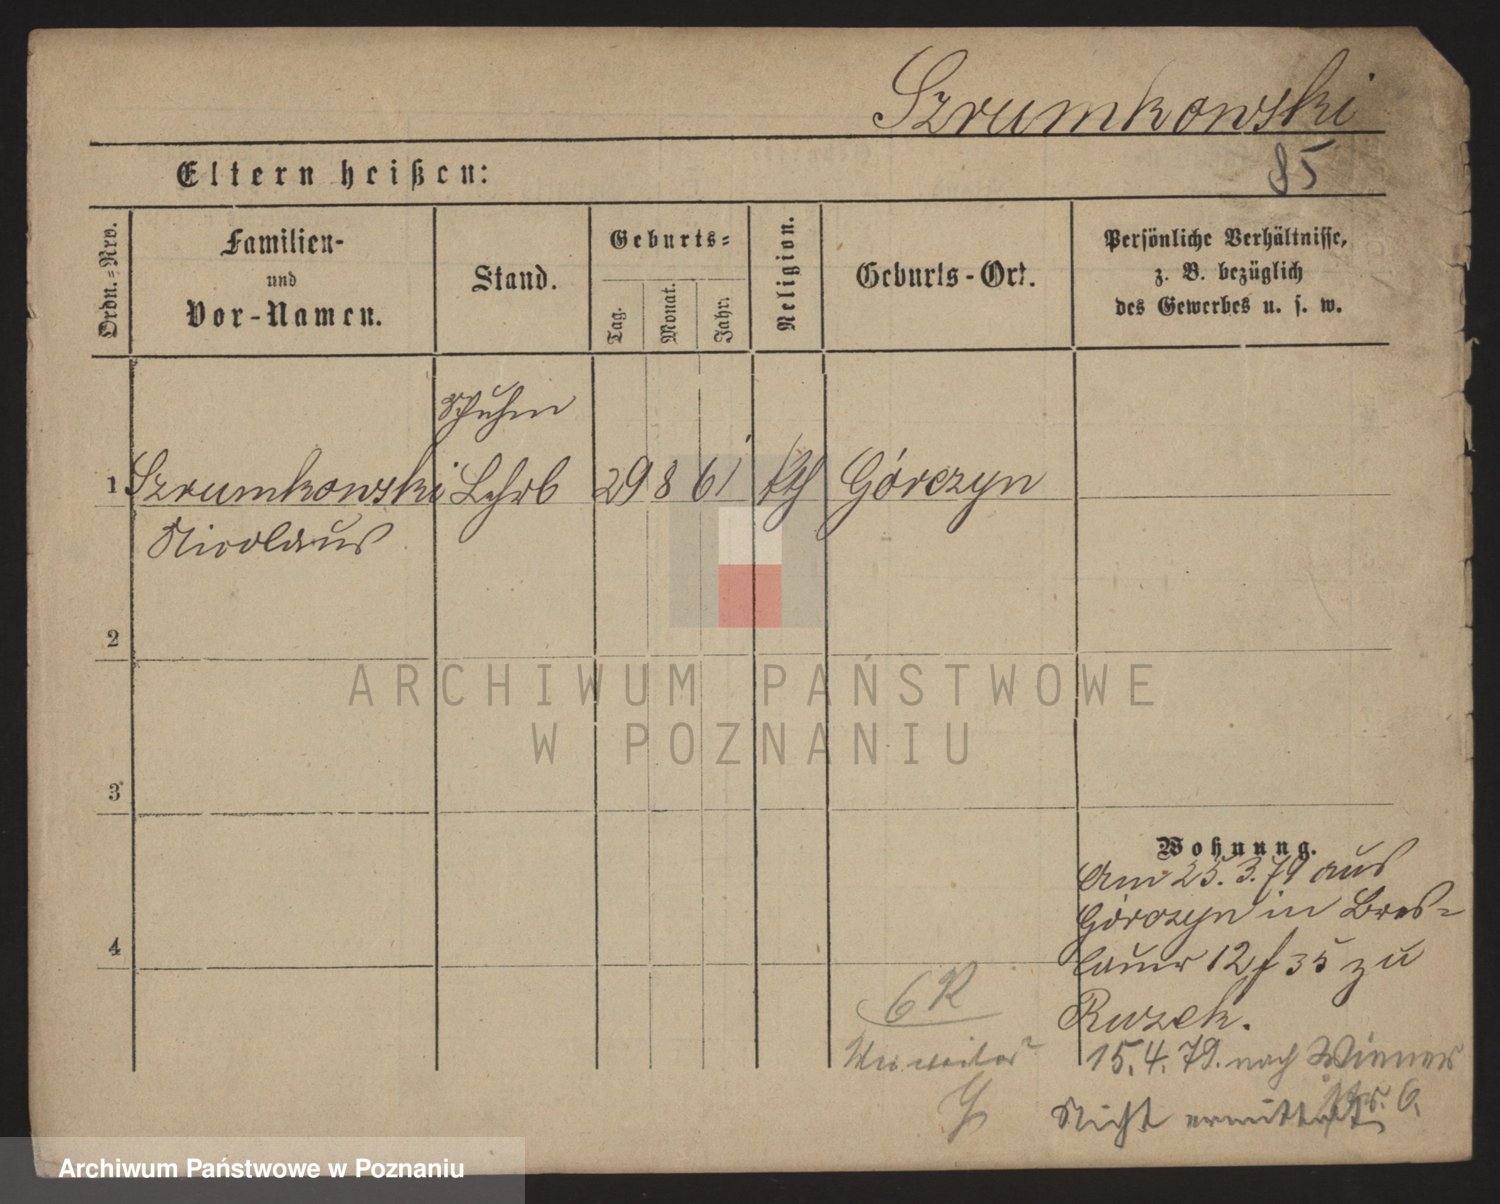 Szrumkowski
Eltern heißen:
85
Ordn.=Nro.
Familien-
und
Vor-Namen.
Stand.
Geburts=
Tag.
Monat.
Jahr.
Religion.
Geburts-Ort.
Persönliche Verhältnisse,
z. B. bezüglich
des Gewerbes u. s. w.
Schuhm
1 Szrumkowski Lehrb 29 8 61 kth Górczyn
Nicolaus
2
ARCHIWUM PAŃSTWOWE
W POZNANIU
3
Wohnung.
Am 25.3.79 aus
Górczyn in Bres=
lauer 12 f 35 zu
Ruzek.
15.4.79. nach Wiener
Str. 6.
4
6 R
Nicht ermittelt
Archiwum Państwowe w Poznaniu